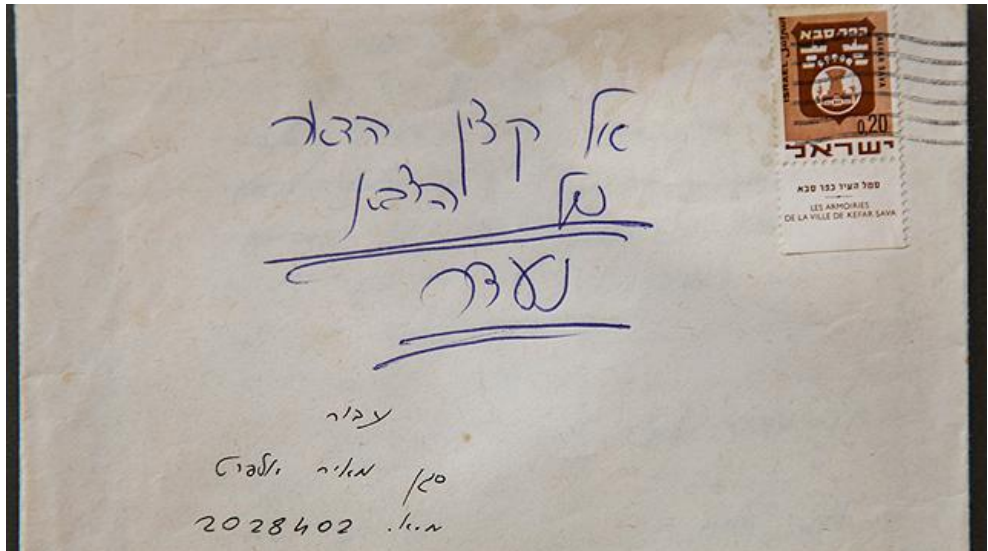 כפר סבא
ISRAEL إسرائيل
KEFAR SAVA
0.20
ישראל
סמל העיר כפר סבא
LES ARMOIRIES
DE LA VILLE DE KEFAR SAVA
אל קצין הדאר
של
נעדר
עבור
סגן מאיר אלפרט
מ.א. 2028402